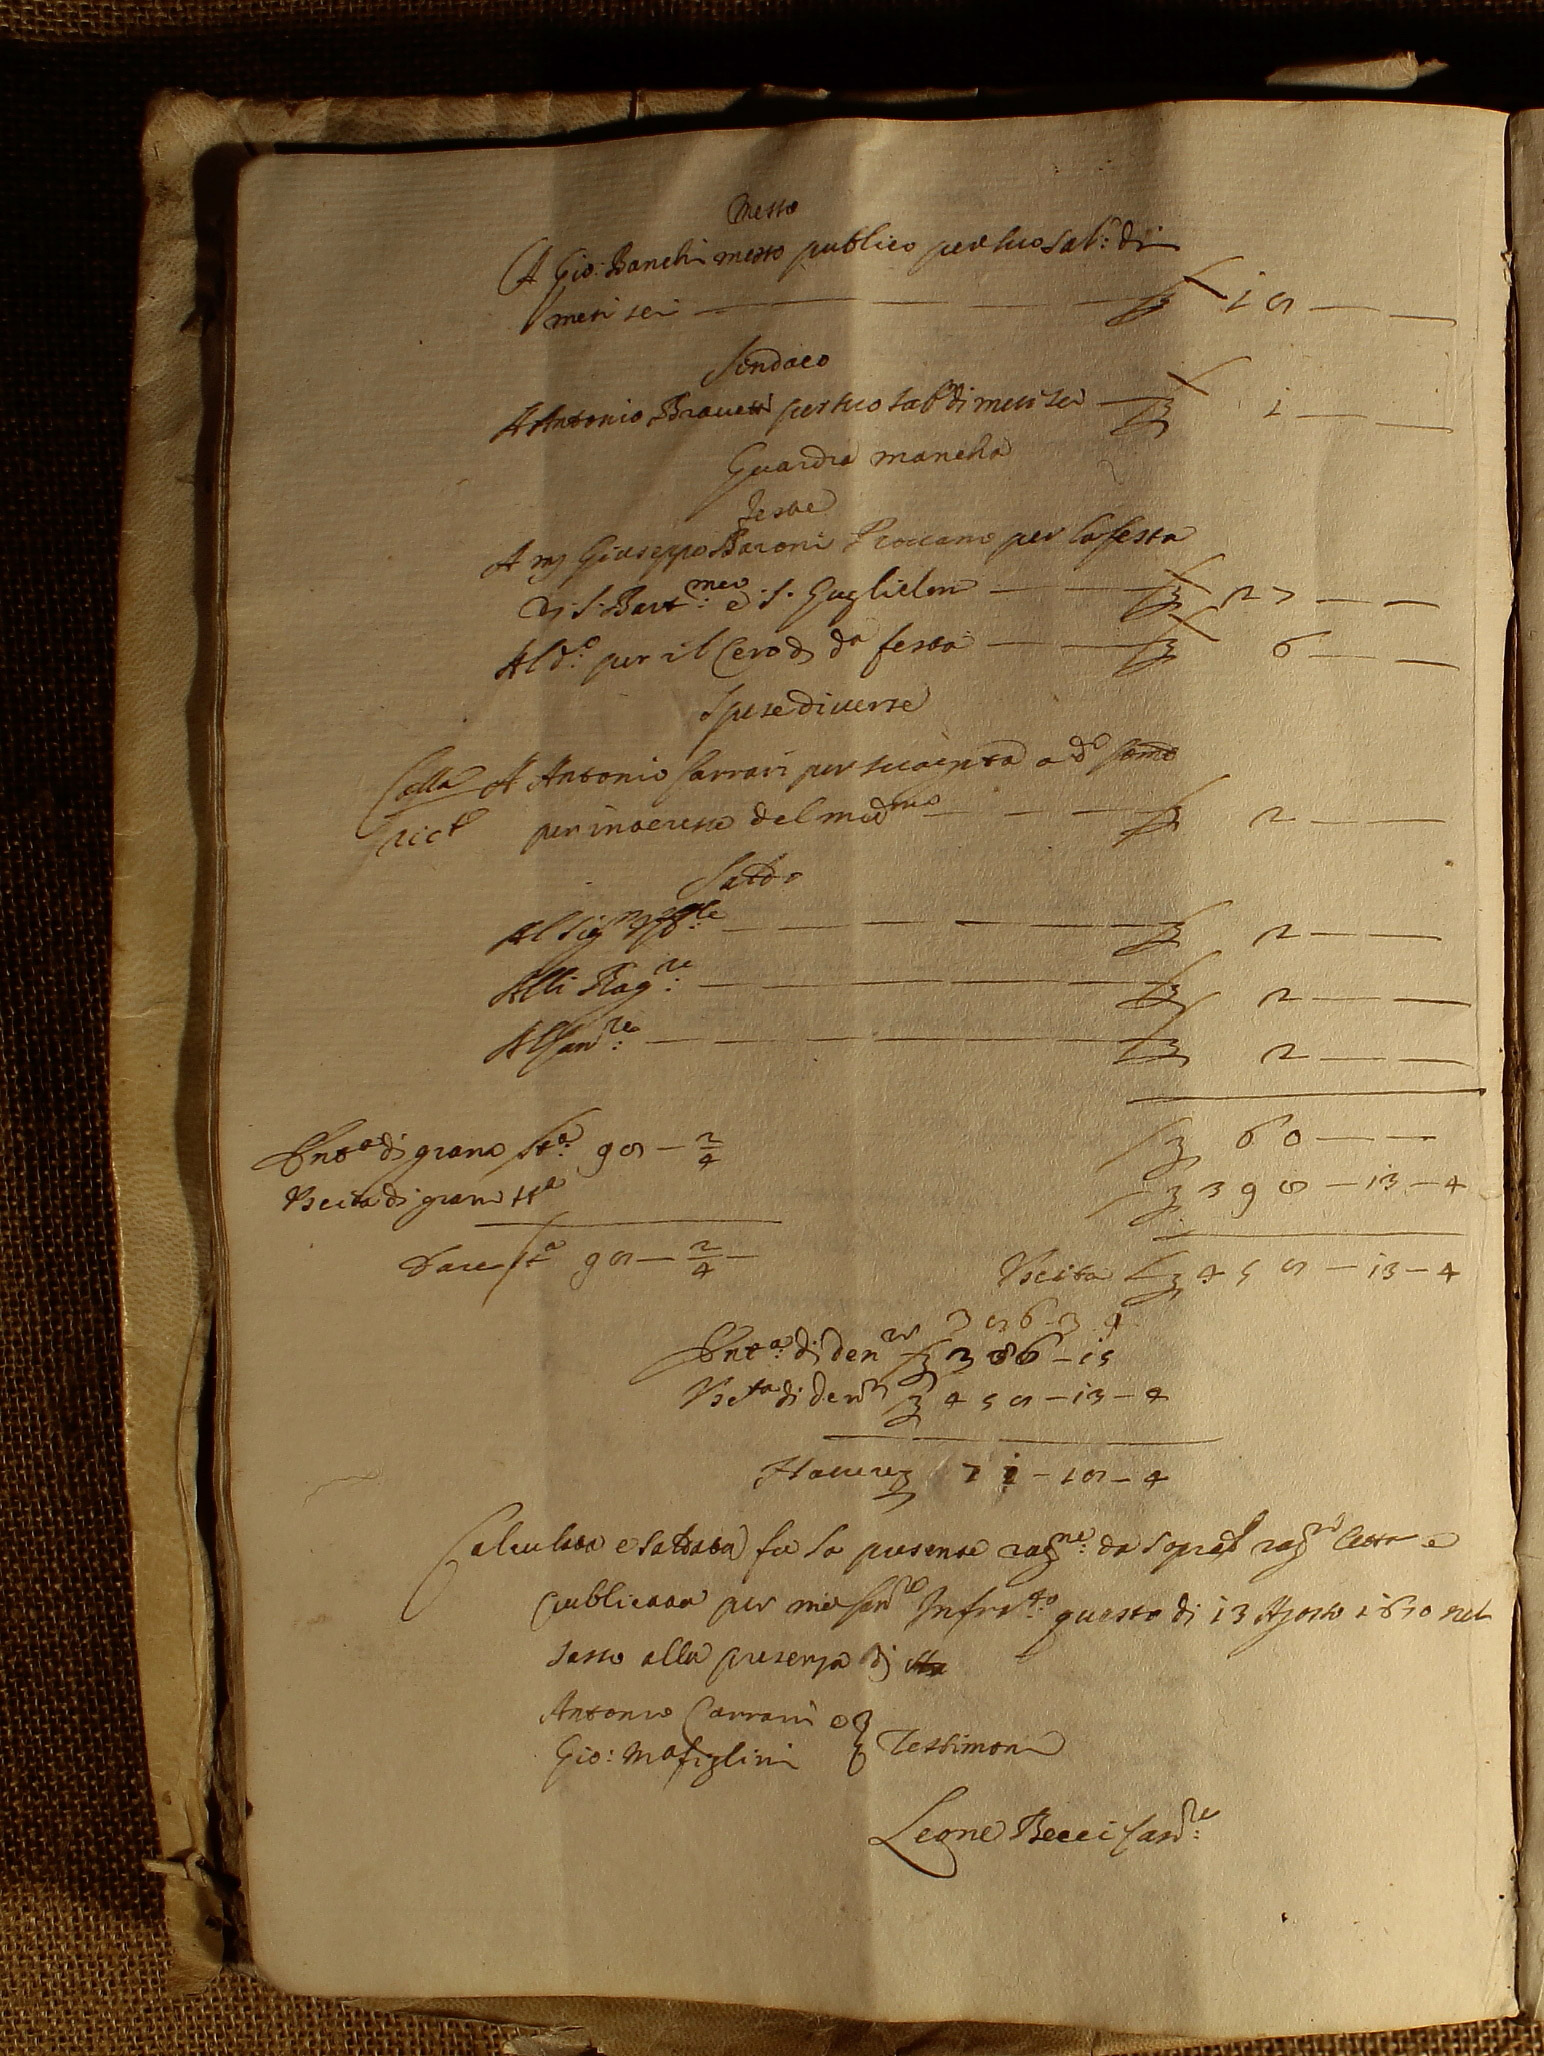 Messo
A Gio: Banchi messo publico per suo sal.º di
mesi sei — £ 18 — —
Sindaco
A Antonio Brauetti per suo sal.º di mesi sei — £ 1 — —
Guardia mancha
Feste
A mſ Giuseppe Baroni per la festa
di S. Bart.meo e S. Guglielmo — £ 27 — —
Al d.º per il Cero di d.ª festa — £ 6 — —
Spese diuerse
A Antonio Carrari per sua gita a
per interesse del med.mo — £ 2 — —
Saldo
Al Sig.r — £ 2 — —
Alli Rag.ri — £ 2 — —
Al Can.re — £ 2 — —
Ent.ª di grano st.ª 98 — 2/4
Vscita di grani st.ª
Dare st.ª 98 — 2/4 —
£ 60 — —
£ 398 — 13 — 4
Vscita £ 458 — 13 — 4
386 3 4
Ent.ª di den.ri £ 386 — 15
Vsc.ta di den.ri £ 458 — 13 — 4
Hauere £ 71 — 18 — 4
Calculata e saldata fu la presente rag.ne da sopra.ti rag.ri letta e
publicata per me Can.re Infra.tto questo di 13 Agosto 1670 nel
Sasso alla presenza di
Antonio Carrari e
Gio: Mafiglini } Testimoni
Leone Becci Can.re